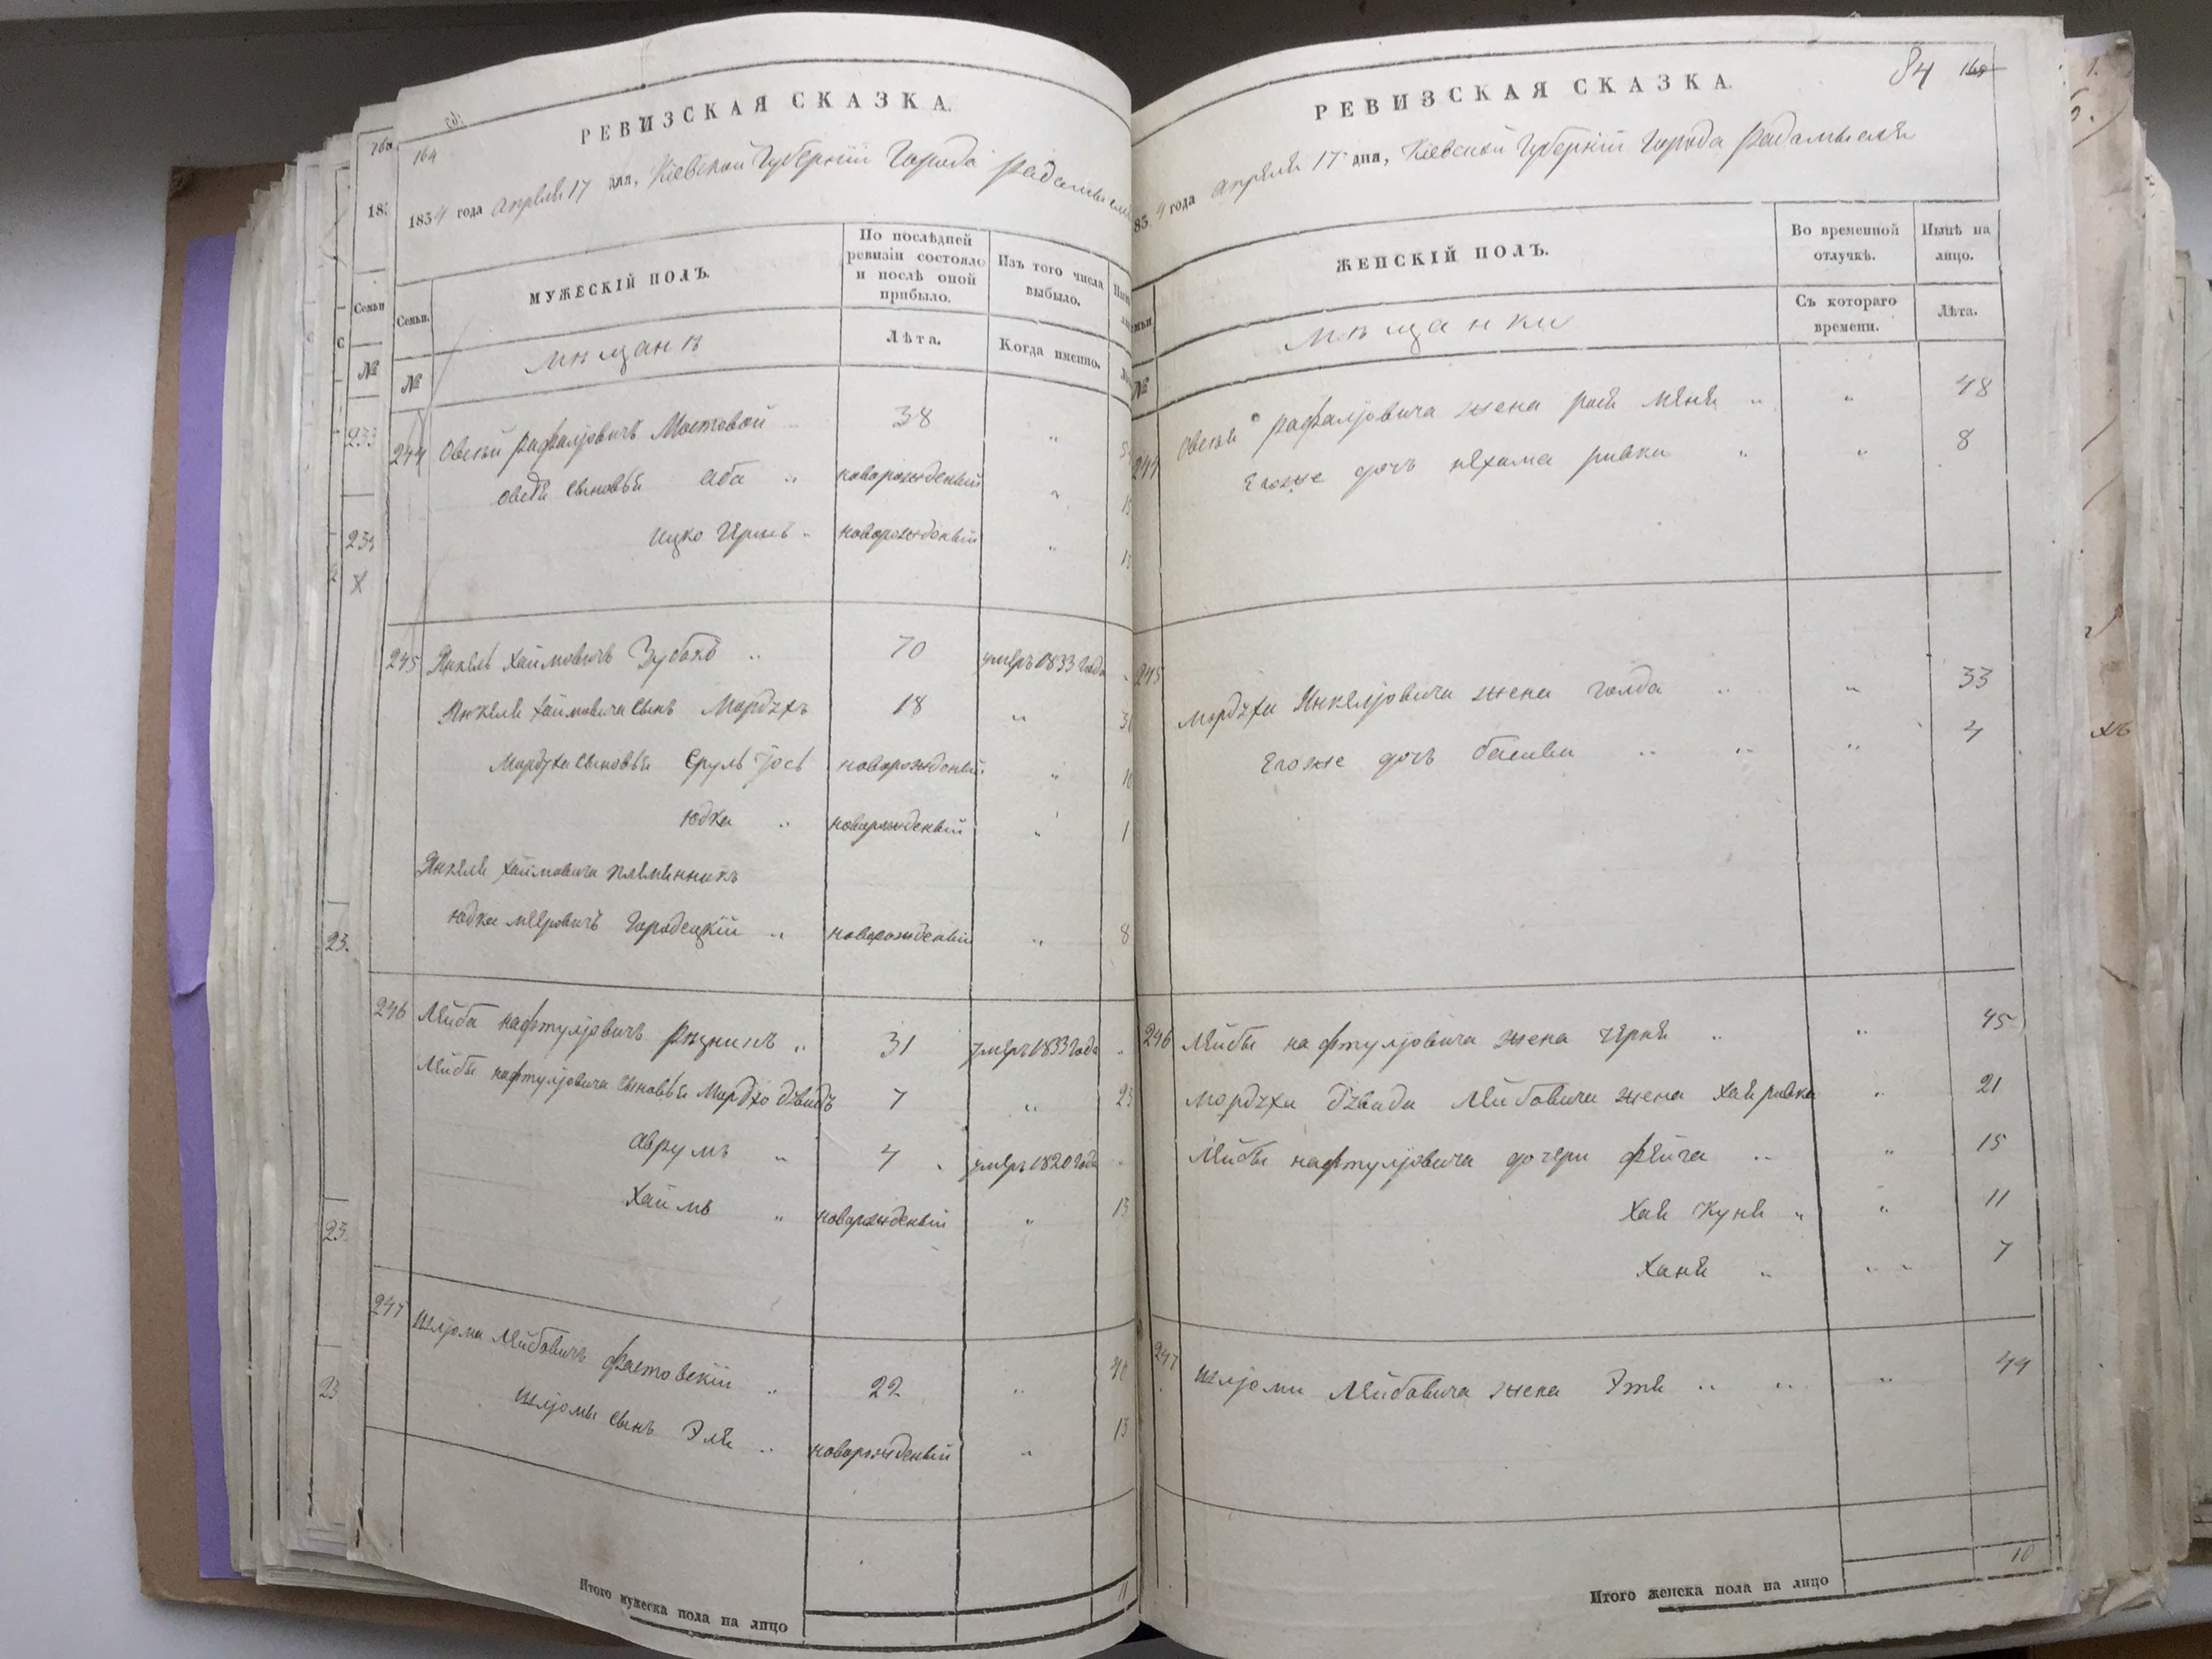 164
РЕВИЗСКАЯ СКАЗКА.
1834 года апреля 17 дня, Кіевской Губерніи Города Радомысля
Семьи.
МУЖЕСКІЙ ПОЛЪ.
По послѣдней ревизіи состояло и послѣ оной прибыло.
Изъ того числа выбыло.
№
мѣщанѣ
Лѣта.
Когда именно.
244 Овсѣй Рафаліовичъ Мостовой 38 "
Овсѣя сыновья Аба " новорожденый "
Ицко Гершъ " новорожденый "
245 Янкель Хаймовичъ Зубокъ " 70 умеръ 1833 года
Янкеля Хаймовича сынъ Мордухъ 18 "
Мордуха сыновья Сруль Іось новорожденый "
Юдка " новорожденый "
Янкеля Хаймовича племинникъ
Юдка Мееровичъ Городецкій " новорожденый " 8
246 Лейба Нафтуліовичъ " 31 умеръ 1833 года
Лейбы Нафтуліовича сыновья Мордхо Дувидъ 7 "
Аврумъ " 4 умеръ 1820 года
Хаймъ " новорожденый " 13
247 Шліома Лейбовичъ Фастовскій " 22 "
Шліомы сынъ Эля " новорожденый " 13
Итого мужеска пола на лицо 11
84
РЕВИЗСКАЯ СКАЗКА.
1834 года апреля 17 дня, Кіевской Губерніи Города Радомысля
ЖЕНСКІЙ ПОЛЪ.
Во временной отлучкѣ.
Нынѣ на лицо.
№
мѣщанки
Съ котораго времени.
Лѣта.
244 Овсѣя Рафаліовича жена Рася Меня " " 48
Егоже дочъ Нехама Ривка " " 8
245
Мордуха Янкеліовича жена Голда " " 33
Егоже дочъ Басива " " " 4
246 Лейбы Нафтуліовича жена Черня " " 45
Мордуха Дувида Лейбовича жена Хая Ривка " 21
Лейбы Нафтуліовича дочери Фейга " " 15
Хая Куня " " 11
Ханя " " " 7
247 Шліоми Лейбовича жена Этя " " " 44
Итого женска пола на лицо 10